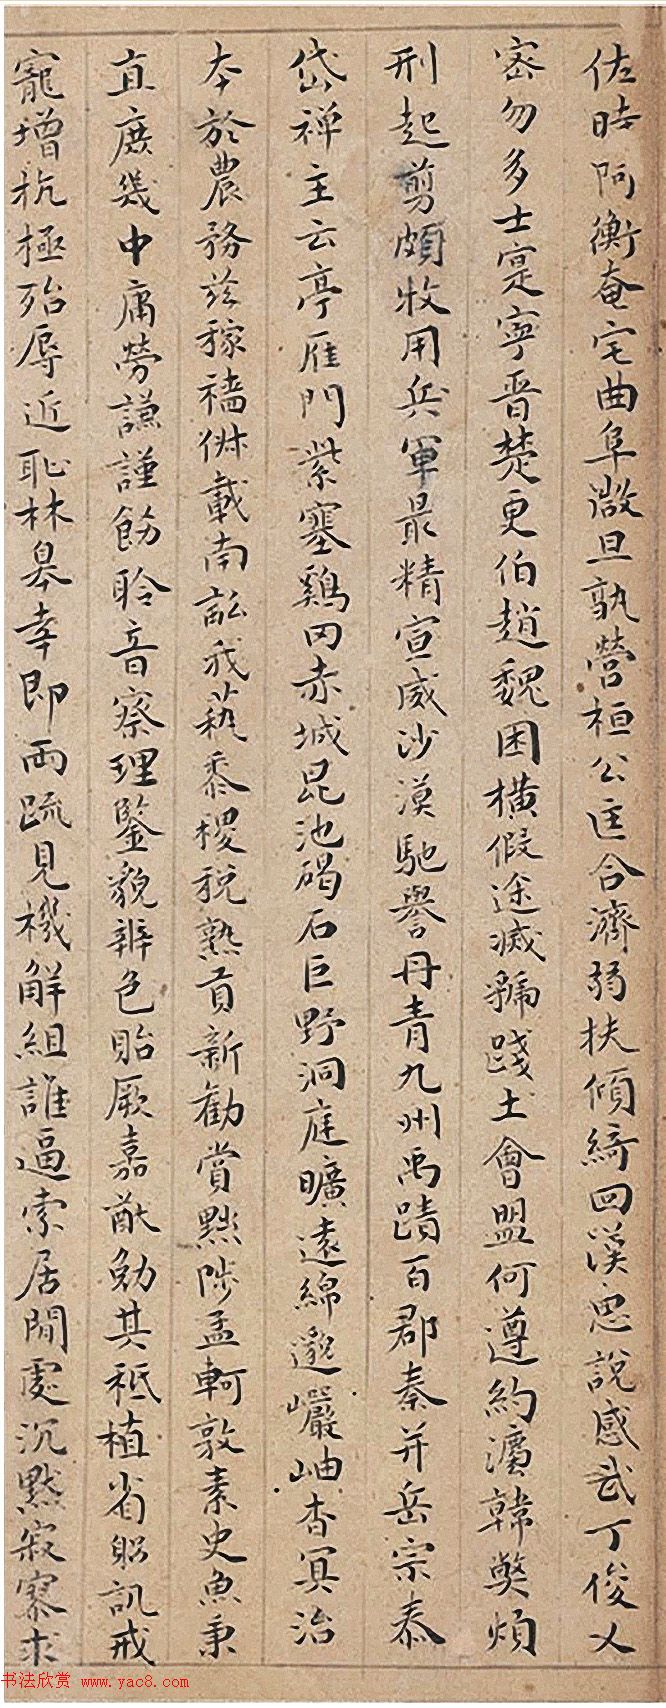 佐時阿衡奄宅曲阜微旦孰營桓公匡合濟弱扶傾綺回漢惠說感武丁俊乂
密勿多士寔寧晉楚更伯趙魏困橫假途滅虢踐土會盟何遵約法韓弊煩
刑起翦頗牧用兵軍最精宣威沙漠馳譽丹青九州禹蹟百郡秦并岳宗泰
岱禅主云亭雁門紫塞鷄田赤城昆池碣石巨野洞庭曠遠綿邈巖岫杳冥治
本於農務茲稼穡俶載南畝我藝黍稷稅熟貢新勸賞黜陟孟軻敦素史魚秉
直庶幾中庸勞謙謹飭聆音察理鑒貌辨色貽厥嘉猷勉其祗植省躬譏戒
寵增抗極殆辱近恥林皋幸即兩疏見機解組誰逼索居閒處沉默寂寥求
书法欣赏 www.yac8.com